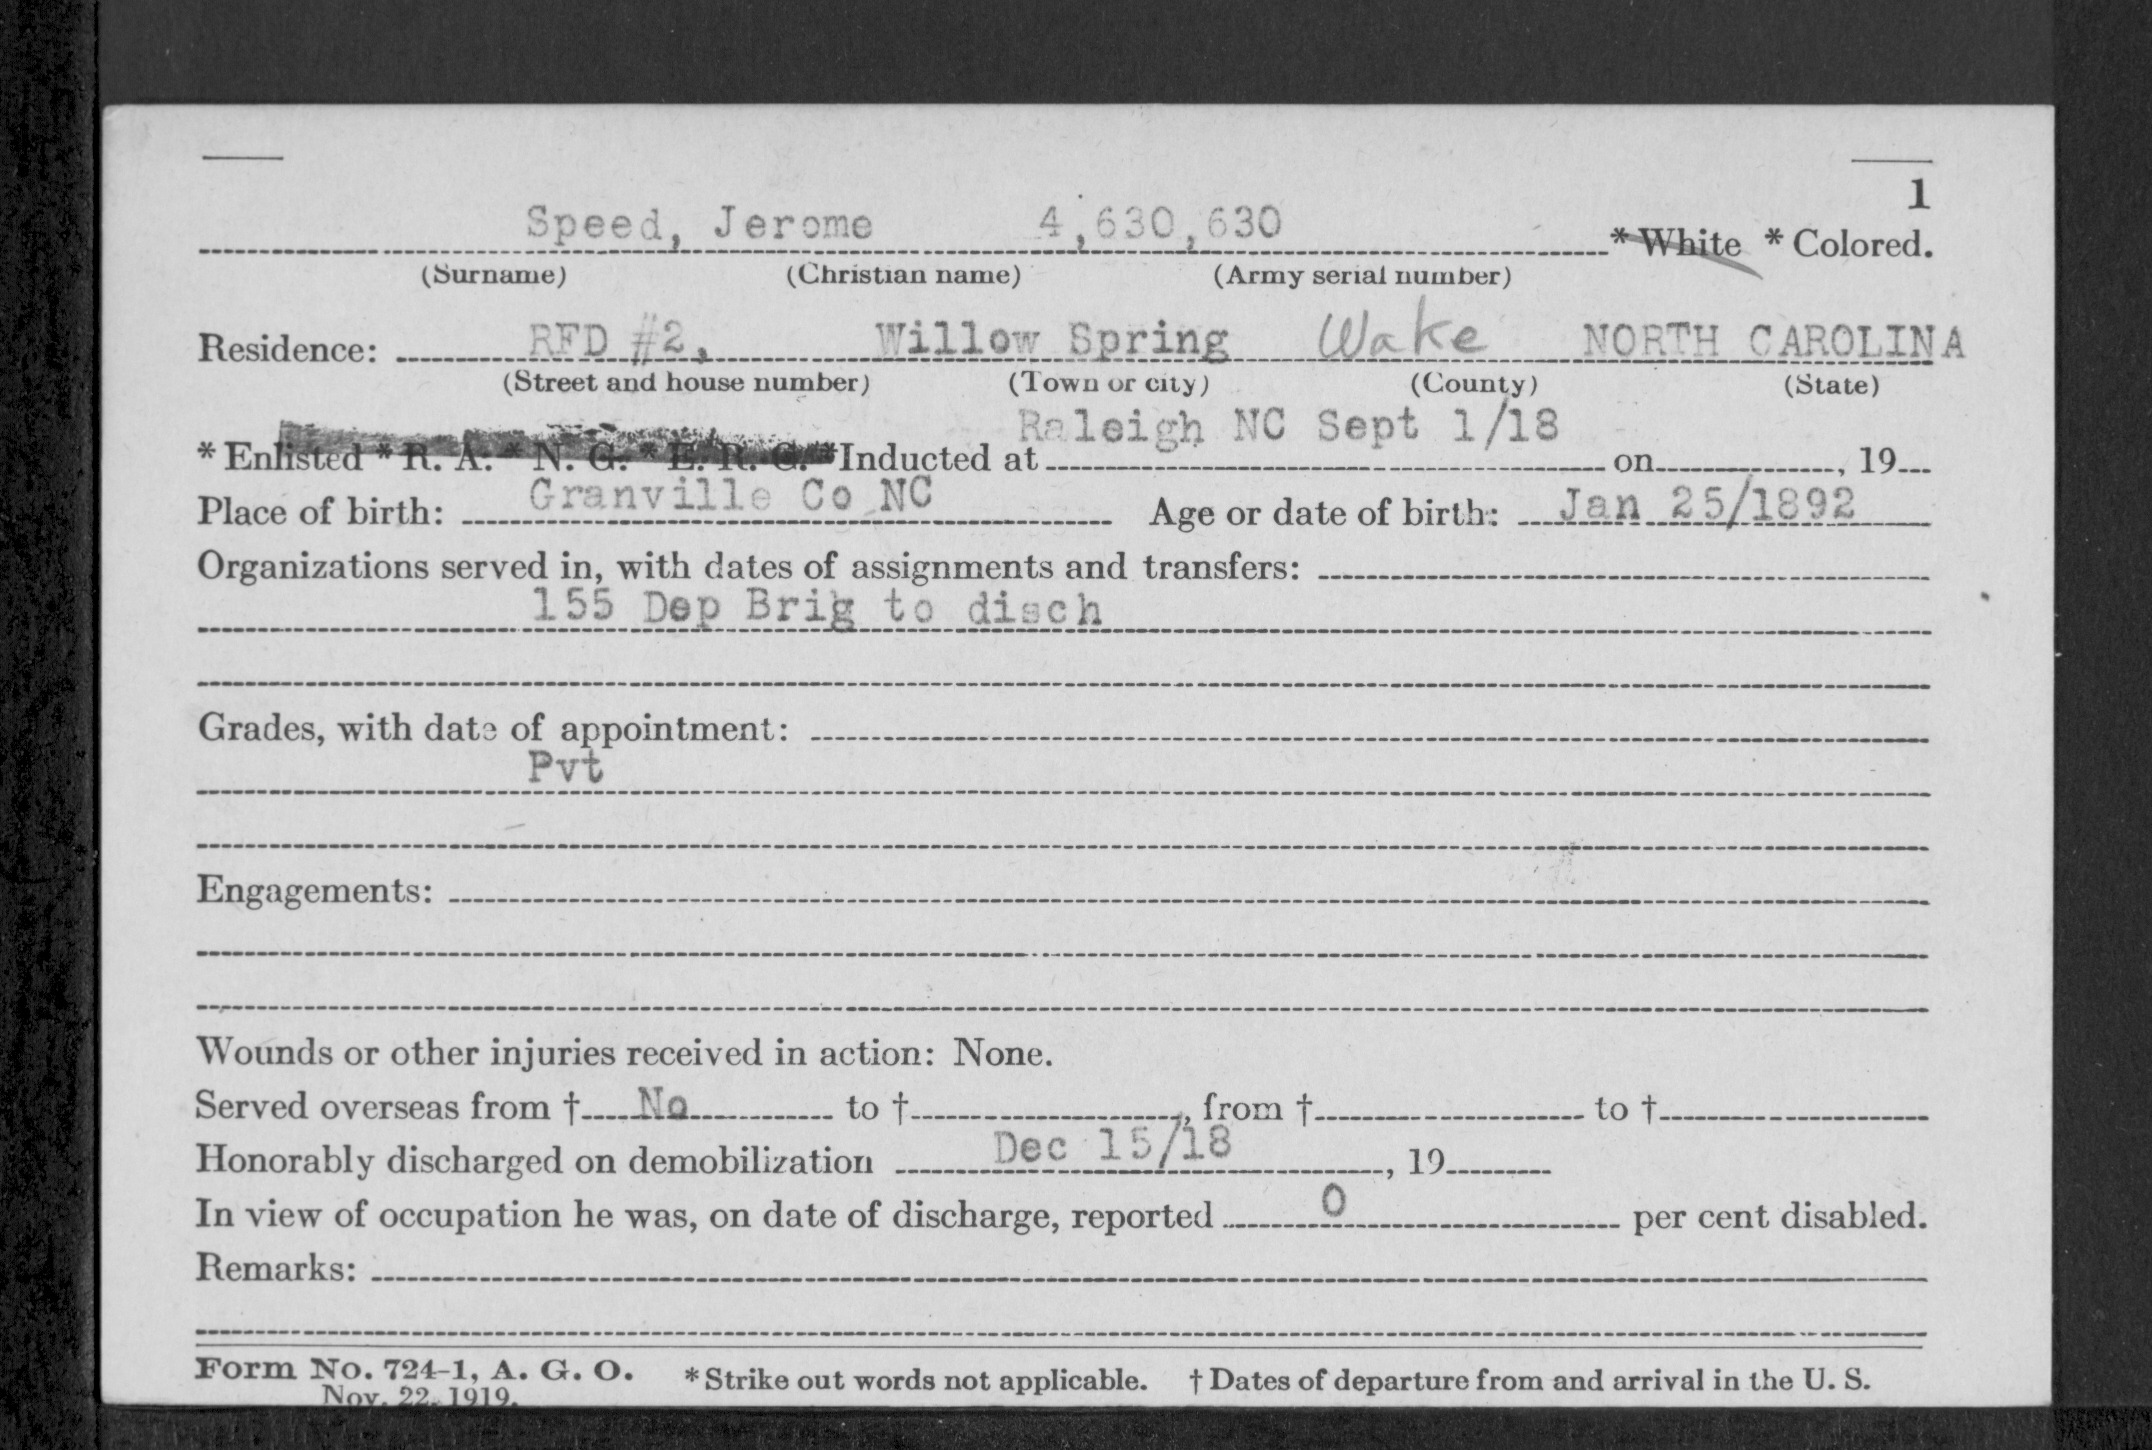 1
Speed, Jerome 4,630,630 * White * Colored.
(Surname) (Christian name) (Army serial number)
Residence: RFD #2, Willow Spring Wake NORTH CAROLINA
(Street and house number) (Town or city) (County) (State)
Raleigh NC Sept 1/18
* Enlisted * R. A. * N. G. * E. R. C. * Inducted at on , 19
Place of birth: Granville Co NC Age or date of birth: Jan 25/1892
Organizations served in, with dates of assignments and transfers:
155 Dep Brig to disch
Grades, with date of appointment:
Pvt
Engagements:
Wounds or other injuries received in action: None.
Served overseas from † No to † , from † to †
Honorably discharged on demobilization Dec 15/18 , 19
In view of occupation he was, on date of discharge, reported 0 per cent disabled.
Remarks:
Form No. 724-1, A. G. O. * Strike out words not applicable. † Dates of departure from and arrival in the U. S.
Nov. 22, 1919.